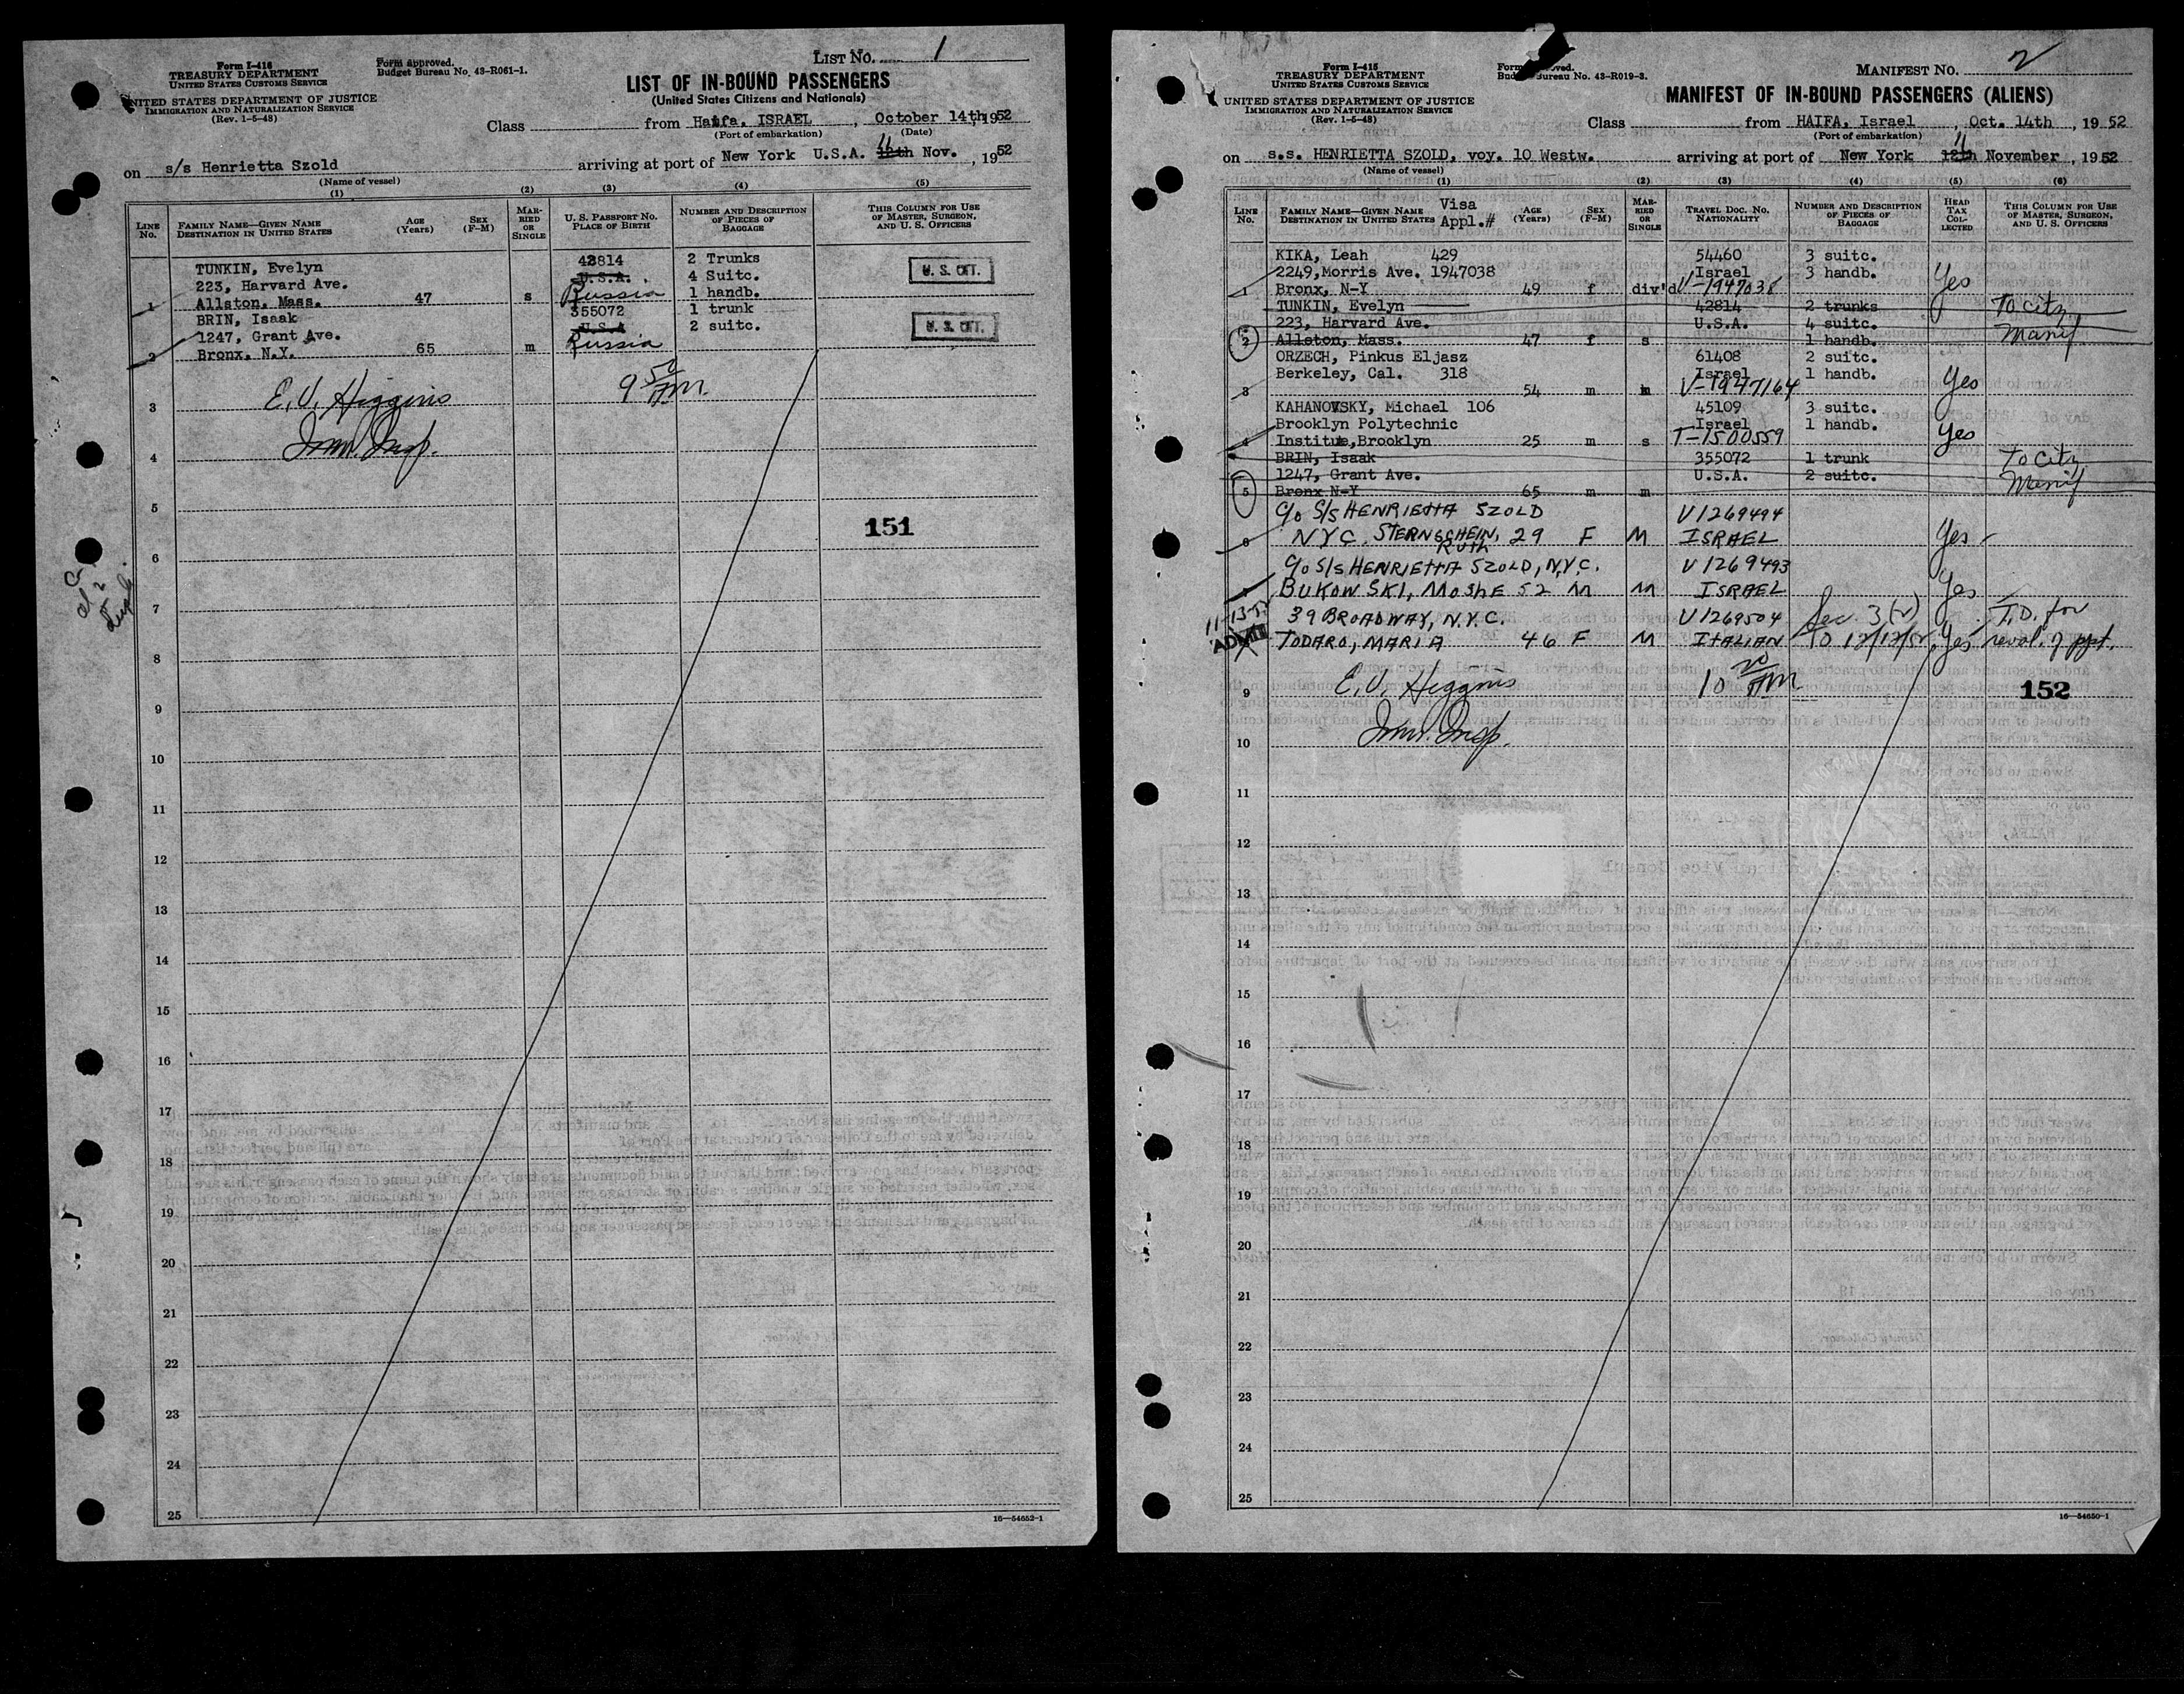 Form I-416
TREASURY DEPARTMENT
UNITED STATES CUSTOMS SERVICE
UNITED STATES DEPARTMENT OF JUSTICE
IMMIGRATION AND NATURALIZATION SERVICE
(Rev. 1-5-48)
Form approved.
Budget Bureau No. 43-R061-1.
LIST NO. 1
LIST OF IN-BOUND PASSENGERS
(United States Citizens and Nationals)
Class from Haifa, ISRAEL, October 14th, 1952
(Port of embarkation) (Date)
on s/s Henrietta Szold arriving at port of New York U.S.A. 12th 11 Nov., 1952
(Name of vessel)
(1) (2) (3) (4) (5)
LINE NO. FAMILY NAME—GIVEN NAME DESTINATION IN UNITED STATES AGE (Years) SEX (F-M) MARRIED OR SINGLE U. S. PASSPORT NO. PLACE OF BIRTH NUMBER AND DESCRIPTION OF PIECES OF BAGGAGE THIS COLUMN FOR USE OF MASTER, SURGEON, AND U. S. OFFICERS
TUNKIN, Evelyn 42814 2 Trunks
223, Harvard Ave. U.S.A. 4 Suitc. U. S. CIT.
1 Allston, Mass. 47 s Russia 1 handb.
BRIN, Isaak 355072 1 trunk
1247, Grant Ave. U.S.A 2 suitc. U. S. CIT.
2 Bronx, N.Y. 65 m Russia
3 E. V. Higgins 9 50 AM.
4 Imm. Insp.
5
151
6
7
8
9
10
11
12
13
14
15
16
17
18
19
20
21
22
23
24
25
16—54652-1
Form I-415
TREASURY DEPARTMENT
UNITED STATES CUSTOMS SERVICE
UNITED STATES DEPARTMENT OF JUSTICE
IMMIGRATION AND NATURALIZATION SERVICE
(Rev. 1-5-48)
Budget Bureau No. 43-R019-3.
MANIFEST NO. 2
MANIFEST OF IN-BOUND PASSENGERS (ALIENS)
Class from HAIFA, Israel, Oct. 14th, 1952
(Port of embarkation)
on s.s. HENRIETTA SZOLD, voy. 10 Westw. arriving at port of New York 12th 11 November, 1952
(Name of vessel)
(1) (2) (3) (4) (5) (6)
LINE NO. FAMILY NAME—GIVEN NAME DESTINATION IN UNITED STATES Visa Appl.# AGE (Years) SEX (F-M) MARRIED OR SINGLE TRAVEL DOC. NO. NATIONALITY NUMBER AND DESCRIPTION OF PIECES OF BAGGAGE HEAD TAX COLLECTED THIS COLUMN FOR USE OF MASTER, SURGEON, AND U. S. OFFICERS
KIKA, Leah 429 54460 3 suitc.
2249,Morris Ave. 1947038 Israel 3 handb. Yes
1 Bronx, N-Y 49 f div'd V-1947038
TUNKIN, Evelyn 42814 2 trunks To City
223, Harvard Ave. U.S.A. 4 suitc. Manif
2 Allston, Mass. 47 f s 1 handb.
ORZECH, Pinkus Eljasz 61408 2 suitc.
Berkeley, Cal. 318 Israel 1 handb. Yes
3 54 m m V-1947164
KAHANOVSKY, Michael 106 45109 3 suitc.
Brooklyn Polytechnic Israel 1 handb. Yes
4 Institue,Brooklyn 25 m s T-1500559
BRIN, Isaak 355072 1 trunk To City
1247, Grant Ave. U.S.A. 2 suitc. Manif
5 Bronx N-Y 65 m m
c/o S/s HENRIETTA SZOLD V1269494
6 NYC. STERNSCHEIN, Ruth 29 F M ISRAEL Yes
c/o S/s HENRIETTA SZOLD, N.Y.C. V1269493
BUKOWSKI, MOSHE 52 M M ISRAEL Yes
11-13-52 39 BROADWAY, N.Y.C. V1269504 Sec. 3(2) T.D. for
TODARO, MARIA 46 F M ITALIAN to 12/12/52 Yes reval. of ppt.
9 E. V. Higgins 10 20 AM 152
10 Imm. Insp.
11
12
13
14
15
16
17
18
19
20
21
22
23
24
25
16—54650-1